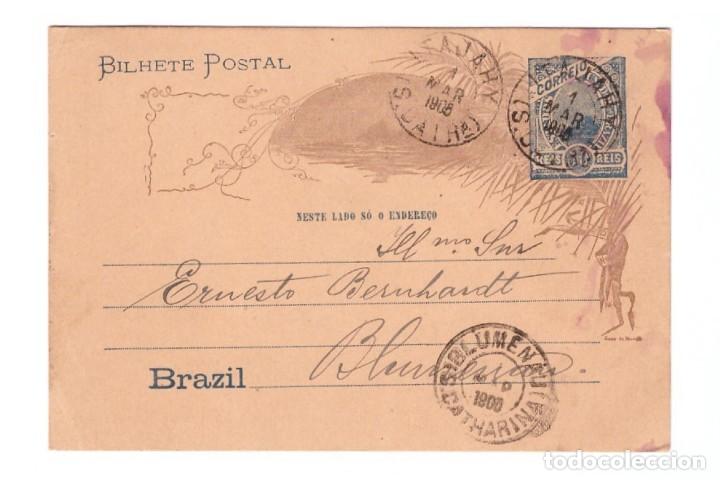 BILHETE POSTAL
ITAJAHY
1
MAR
1900
(S. CATHA)
CORREIO
ITAJAHY
1
MAR
1900
REIS REIS
NESTE LADO SÓ O ENDEREÇO
Ill mo Snr
Ernesto Bernhardt
Blumenau
Brazil
BLUMENAU
1900
CATHARINA
todocoleccion.net